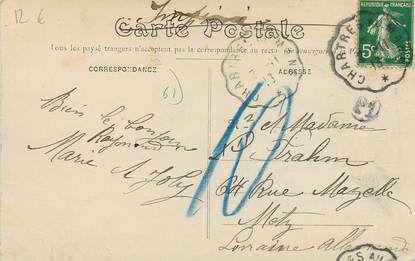 12 6
Imprimé
Carte Postale
Tous les pays étrangers n'acceptent pas la correspondance au recto
CORRESPONDANCE
ADRESSE
61
Bien le bonjour
Raymond
Marie A Joly
10
Mr et Madame
Frahm
64 Rue Mazelle
Metz
Lorraine Allemande
CHARTRE
REPUBLIQUE FRANÇAISE
5
POSTES
CHARTRE